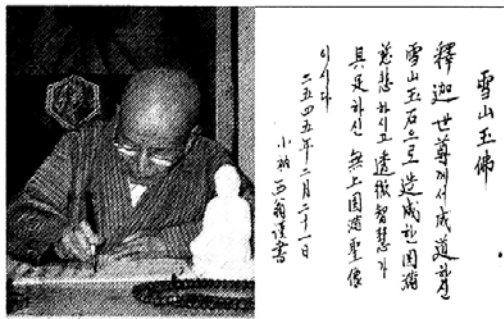 雪山玉佛
釋迦世尊께서 成道하신
雪山玉石으로 造成한 圓滿
慈悲하시고 透徹智慧가
具足하신 無上圓滿聖像
이시다
二五四五年 二月 二十一日
小衲 西翁 謹書